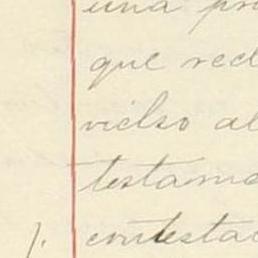 una pr
que red
vielso al
testame
contestac